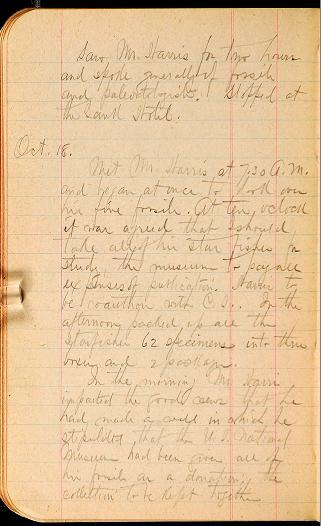 Saw Mr. Harris for two hours
and spoke generally of fossils
and paleontologists. Stopped at
the Sank Hotel.
Oct. 18.
Met Mr. Harris at 7:30 A.M.
and began at once to look over
his fine fossils. At ten o'clock
it was agreed that I should
take all of his star fishes for
study, the museum to pay all
expenses of publication. Harris to
be coauthor with C.S.. In the
afternoon packed up all the
starfishes 62 specimens into three
boxes and 2 packages.
In the morning Mr. Harris
imparted the good news that he
had made a will in which he
stipulated that the U.S. National
Museum had been given all of
his fossils as a donation, the
collection to be kept together